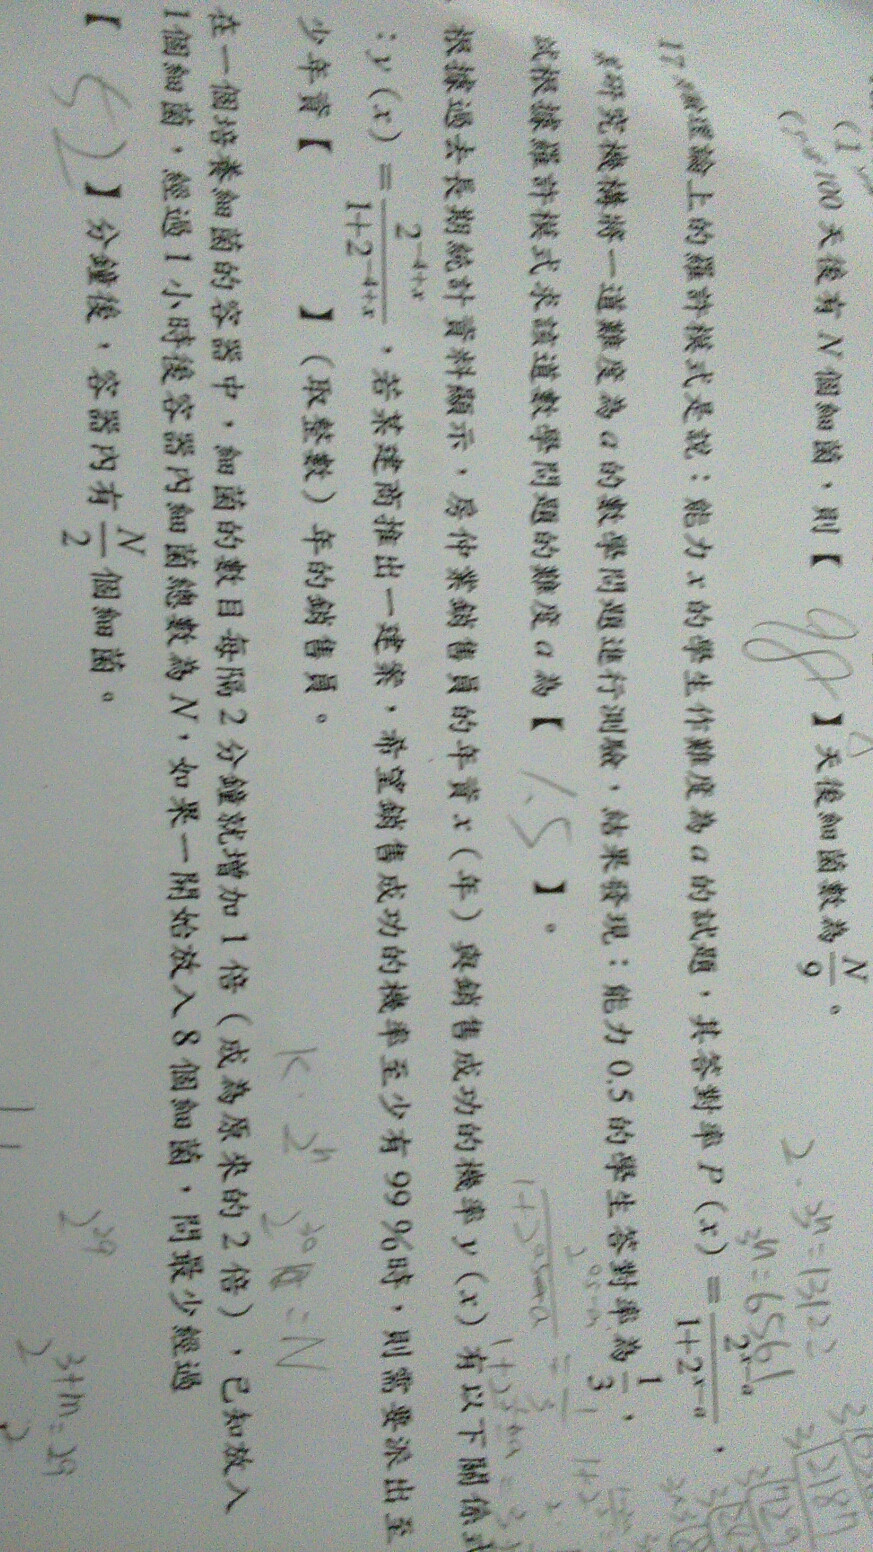 100天後有N個細菌,則【 98 】天後細菌數為N/9。
17 理論上的羅許模式是說:能力x的學生作難度為a的試題,其答對率P(x)=2^(x-a)/(1+2^(x-a)),
研究機構將一道難度為a的數學問題進行測驗,結果發現:能力0.5的學生答對率為1/3,
試根據羅許模式求該道數學問題的難度a為【 1.5 】。
根據過去長期統計資料顯示,房仲業銷售員的年資x(年)與銷售成功的機率y(x)有以下關係式
:y(x)=2^(-4+x)/(1+2^(-4+x)),若某建商推出一建案,希望銷售成功的機率至少有99%時,則需要派出至
少年資【 】(取整數)年的銷售員。
在一個培養細菌的容器中,細菌的數目每隔2分鐘就增加1倍(成為原來的2倍),已知放入
1個細菌,經過1小時後容器內細菌總數為N,如果一開始放入8個細菌,問最少經過
【 52 】分鐘後,容器內有N/2個細菌。
2·3^n=13122
3^n=6561
k·2^n
=N
2^29
3+m=29